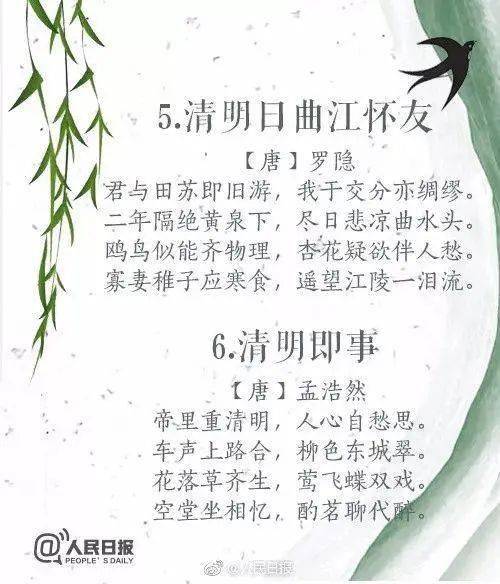 5.清明日曲江怀友
【唐】罗隐
君与田苏即旧游，我于交分亦绸缪。
二年隔绝黄泉下，尽日悲凉曲水头。
鸥鸟似能齐物理，杏花疑欲伴人愁。
寡妻稚子应寒食，遥望江陵一泪流。
6.清明即事
【唐】孟浩然
帝里重清明，人心自愁思。
车声上路合，柳色东城翠。
花落草齐生，莺飞蝶双戏。
空堂坐相忆，酌茗聊代醉。
@人民日报
PEOPLE'S DAILY
@人民日报